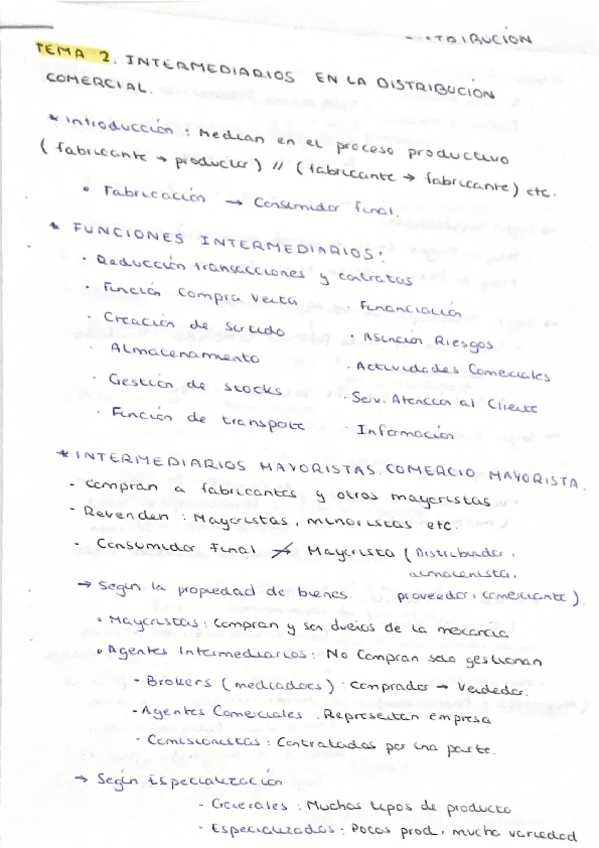 DISTRIBUCIÓN
TEMA 2. INTERMEDIARIOS EN LA DISTRIBUCIÓN
COMERCIAL.
* Introducción: Median en el proceso productivo
(fabricante → productor) // (fabricante → fabricante) etc.
• Fabricación → Consumidor final.
* FUNCIONES INTERMEDIARIOS:
· Reducción transacciones y contratos
· Función Compra Venta · Financiación
· Creación de surtido · Asunción Riesgos
· Almacenamiento · Actividades Comerciales
· Gestión de stocks · Serv. Atención al Cliente
· Función de transporte · Información
* INTERMEDIARIOS MAYORISTAS. COMERCIO MAYORISTA.
- Compran a fabricantes y otros mayoristas
- Revenden: Mayoristas, minoristas etc.
- Consumidor Final ↛ Mayorista (Distribuidor,
almacenista,
→ Según la propiedad de bienes. proveedor, comerciante).
• Mayoristas: Compran y son dueños de la mercancía
• Agentes Intermediarios: No Compran solo gestionan
- Brokers (mediadores): Comprador → Vendedor.
- Agentes Comerciales. Representan empresa
- Comisionistas: Contratados por una parte.
→ Según Especialización
- Generales: Muchos tipos de producto
- Especializados: Pocos prod, mucha variedad